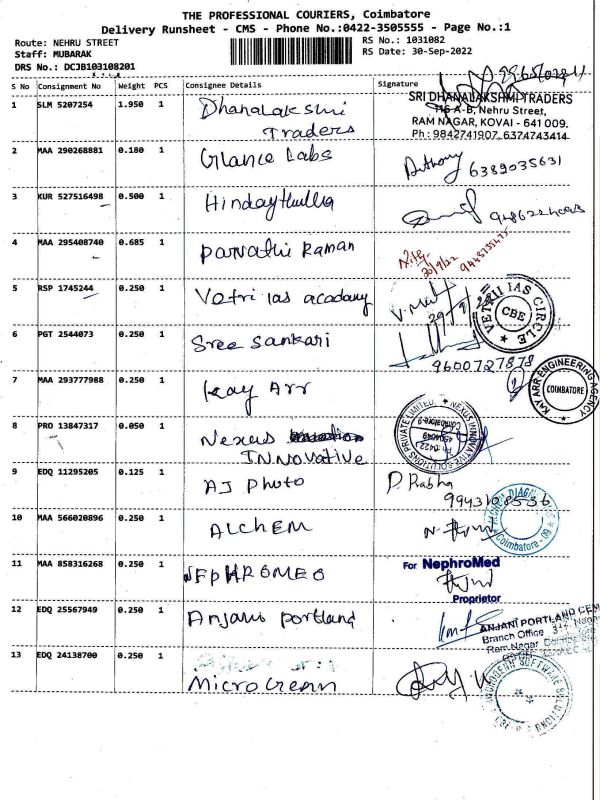 THE PROFESSIONAL COURIERS, Coimbatore
Delivery Runsheet - CMS - Phone No.:0422-3505555 - Page No.:1
Route: NEHRU STREET
RS No.: 1031082
Staff: MUBARAK
RS Date: 30-Sep-2022
DRS No.: DCJB103108201
S No Consignment No Weight PCS Consignee Details Signature
1 SLM 5207254 1.950 1 Dhanalakshmi
Traders
SRI DHANALAKSHMI TRADERS
116 A-B, Nehru Street,
RAM NAGAR, KOVAI - 641 009.
Ph : 9842741907, 6374743414
2 MAA 290268881 0.180 1 Glance Labs
Anthony 6389035631
3 KUR 527516498 0.500 1 Hindaythulla
4 MAA 295408740 0.685 1 Parvathi Raman
30/9/22
5 RSP 1745244 0.250 1 Vetri ias acadamy
VETRII IAS CIRCLE
CBE
6 PGT 2544073 0.250 1 Sree Sankari
9600727878
7 MAA 293777988 0.250 1 Kay Arr
KAY ARR ENGINEERING AGENCY
COIMBATORE
8 PRO 13847317 0.050 1 Nexus
INNovative
NEXUS INNOVATIVE SOLUTIONS PRIVATE LIMITED
Coimbatore-9
9 EDQ 11295205 0.125 1 AJ Photo
D. Prabha
10 MAA 566020896 0.250 1 ALCHEM
Coimbatore - 09
11 MAA 858316268 0.250 1 NEPHROMED
For NephroMed
Proprietor
12 EDQ 25567949 0.250 1 Anjani portland
ANJANI PORTLAND CEM
Branch Office
Ram Nagar
13 EDQ 24138700 0.250 1 Microgenn
SOFTWARE SOLUTION